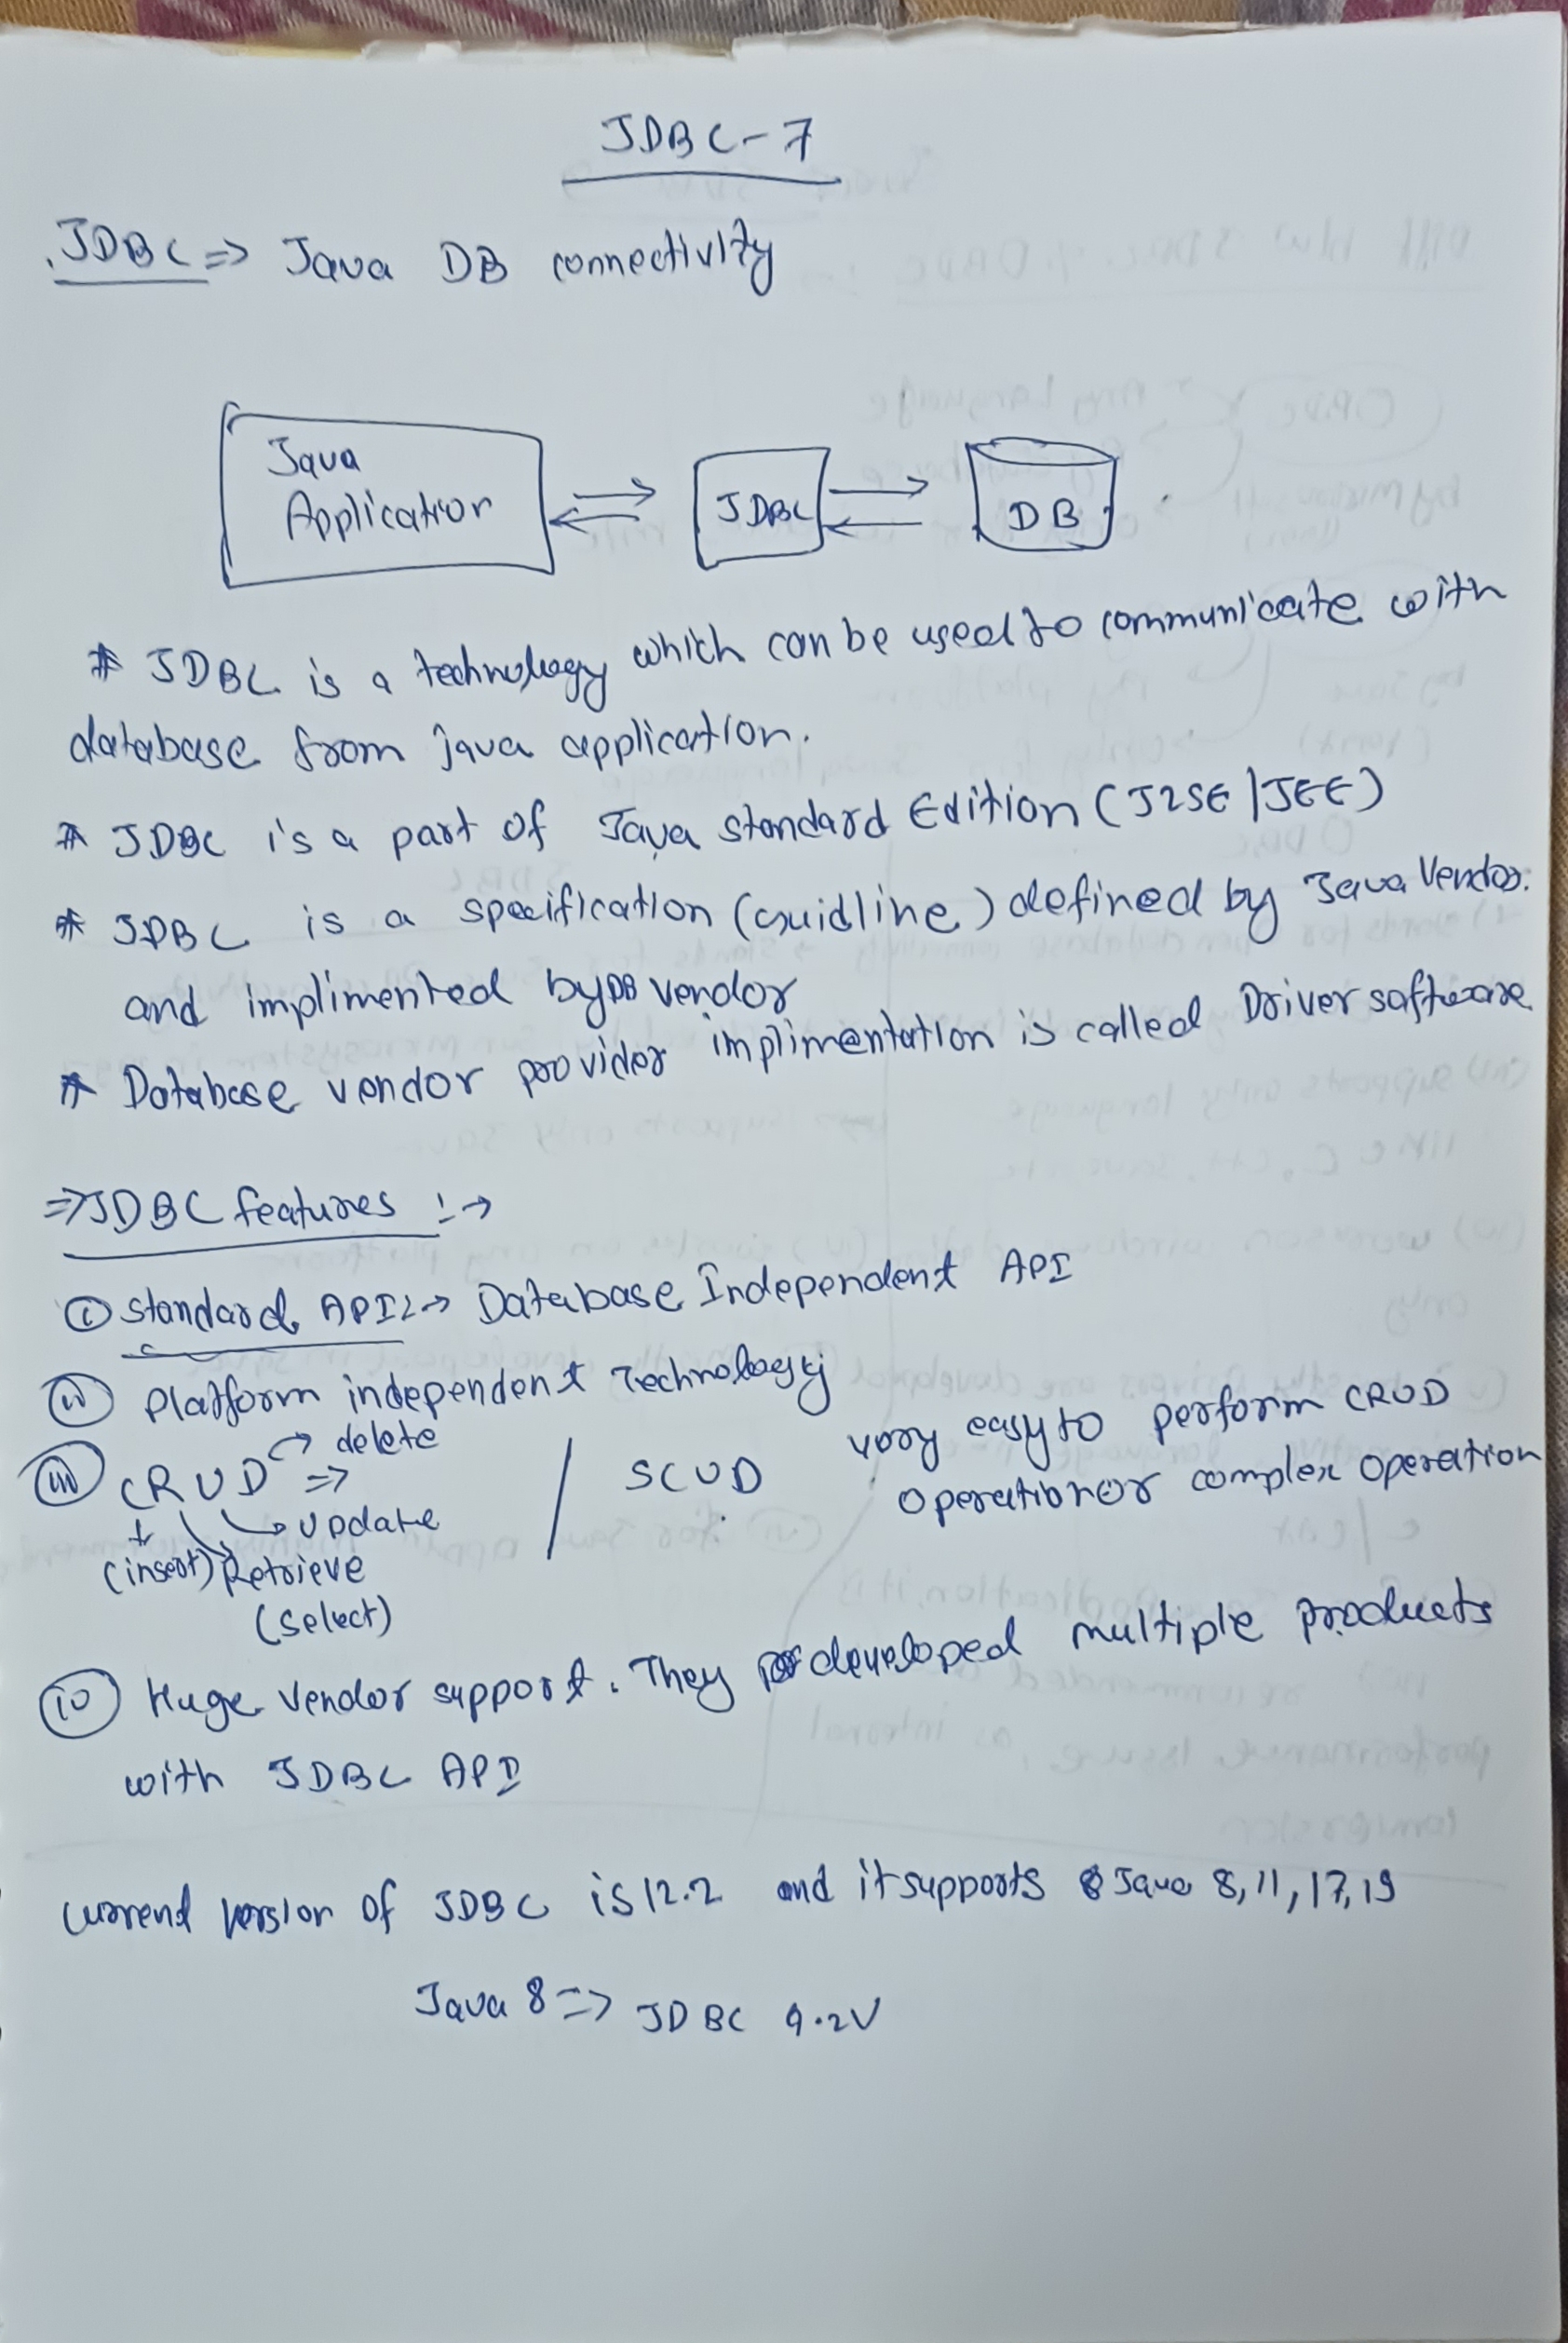 JDBC-7
JDBC => Java DB connectivity
Java
Application
JDBC
DB
* JDBC is a technology which can be used to communicate with
database from java application.
* JDBC is a part of Java standard Edition (J2SE | JEE)
* JDBC is a specification (guidline) defined by Java Vendor.
and implimented by DB vendor
* Database vendor provider implimentation is called Driver software
=> JDBC features :->
(i) standard API :-> Database Independent API
(ii) Platform independent Technology
(iii) CRUD => / SCUD very easy to perform CRUD
operation or complex operation
delete
update
(insert) Retrieve
(select)
(iv) Huge vendor support. They developed multiple products
with JDBC API
current version of JDBC is 12.2 and it supports Java 8, 11, 17, 19
Java 8 => JDBC 4.2V